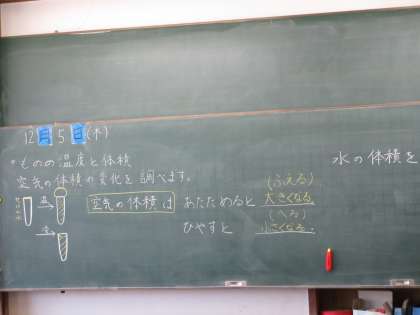 12月5日(木)
・ものの温度と体積
空気の体積の変化を調べます。
空気の体積は
あたためると
(ふえる)
大きくなる。
ひやすと
(へる)
小さくなる。
水の体積を